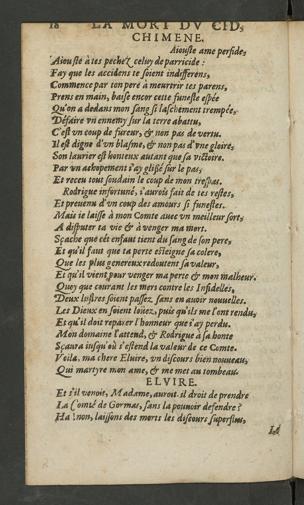 18 LA MORT DV CID,
CHIMENE.
Aiouste ame perfide,
Aiouste à tes pechez celuy de parricide :
Fay que les accidens te soient indifferens,
Commence par ton pere à meurtrir tes parens,
Prens en main, baise encor cette funeste espée
Qu'on a dedans mon sang si laschement trempée,
Défaire vn ennemy sur la terre abattu,
C'est vn coup de fureur, & non pas de vertu.
Il est digne d'vn blasme, & non pas d'vne gloire,
Son laurier est honteux autant que sa victoire.
Par vn achopement i'ay glissé sur le pas,
Et receu tout soudain le coup de mon trespas.
Rodrigue infortuné, i'aurois fait de tes restes,
Et preuenu d'vn coup des amours si funestes.
Mais ie laisse à mon Comte auec vn meilleur sort,
A disputer ta vie & à venger ma mort.
Sçache que cét enfant tient du sang de son pere,
Et qu'il faut que ta perte esteigne sa colere,
Que les plus genereux redoutent sa valeur,
Et qu'il vient pour venger ma perte & mon malheur.
Quoy que courant les mers contre les Infidelles,
Deux lustres soient passez sans en auoir nouuelles.
Les Dieux en soient loüez, puis qu'ils me l'ont rendu,
Et qu'il doit reparer l'honneur que i'ay perdu.
Mon domaine l'attend, & Rodrigue à sa honte
Sçaura iusqu'où s'estend la valeur de ce Comte.
Voila, ma chere Eluire, vn discours bien nouueau,
Qui martyre mon ame, & me met au tombeau.
ELVIRE.
Et s'il venoit, Madame, auroit-il droit de prendre
La Comté de Gormas, sans la pouuoir defendre ?
Ha ! non, laissons des morts les discours superflus,
LA